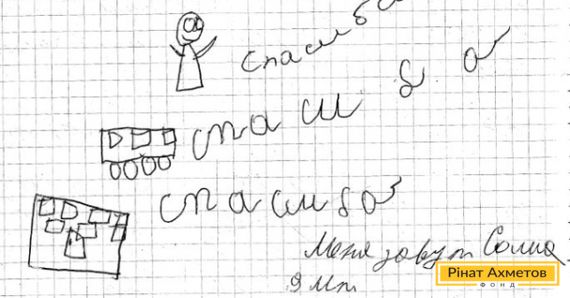 спасиба
спасиба
спасиба
Меня завут
9 лет
Рінат Ахметов
ФОНД